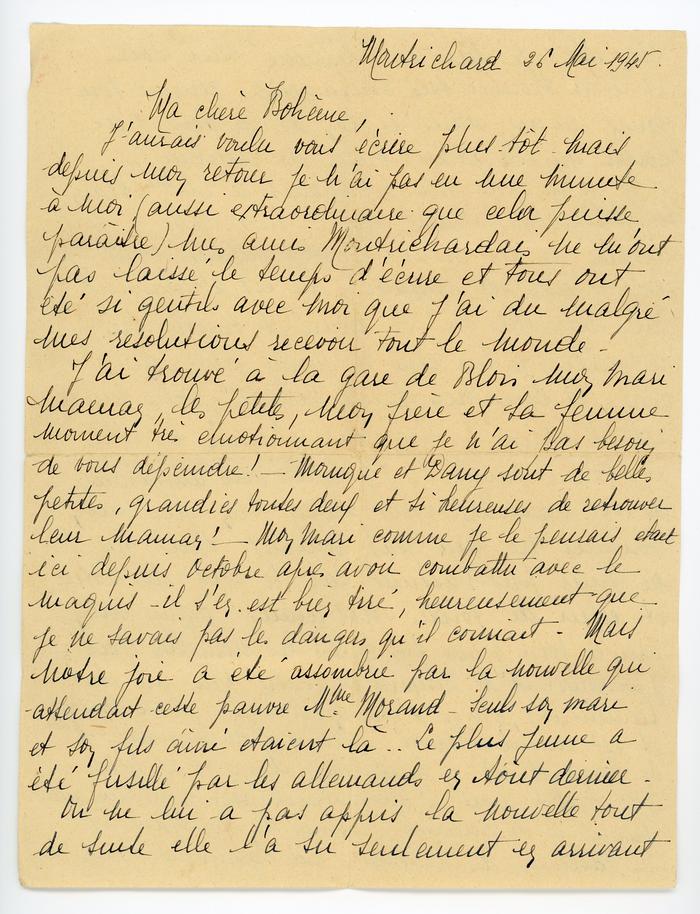 Montrichard 26 Mai 1945.
Ma chère Bohème,
J'aurais voulu vous écrire plus tôt mais
depuis mon retour je n'ai pas eu une minute
à moi (aussi extraordinaire que cela puisse
paraître) mes amis Montrichardais ne m'ont
pas laissé le temps d'écrire et tous ont
été si gentils avec moi que j'ai du malgré
mes résolutions recevoir tout le monde -
J'ai trouvé à la gare de Blois mon mari
maman, les petites, mon frère et sa femme
moment très émotionnant que je n'ai pas besoin
de vous dépeindre! - Monique et Dany sont de belles
petites, grandies toutes deux et si heureuses de retrouver
leur maman! - Mon mari comme je le pensais était
ici depuis octobre après avoir combattu avec le
maquis - il s'en est bien tiré, heureusement que
je ne savais pas les dangers qu'il courait - Mais
notre joie a été assombrie par la nouvelle qui
attendait cette pauvre Mme Morand - Seuls son mari
et son fils ainé etaient là .. Le plus jeune a
été fusillé par les allemands en Août dernier -
On ne lui a pas appris la nouvelle tout
de suite elle l'a su seulement en arrivant